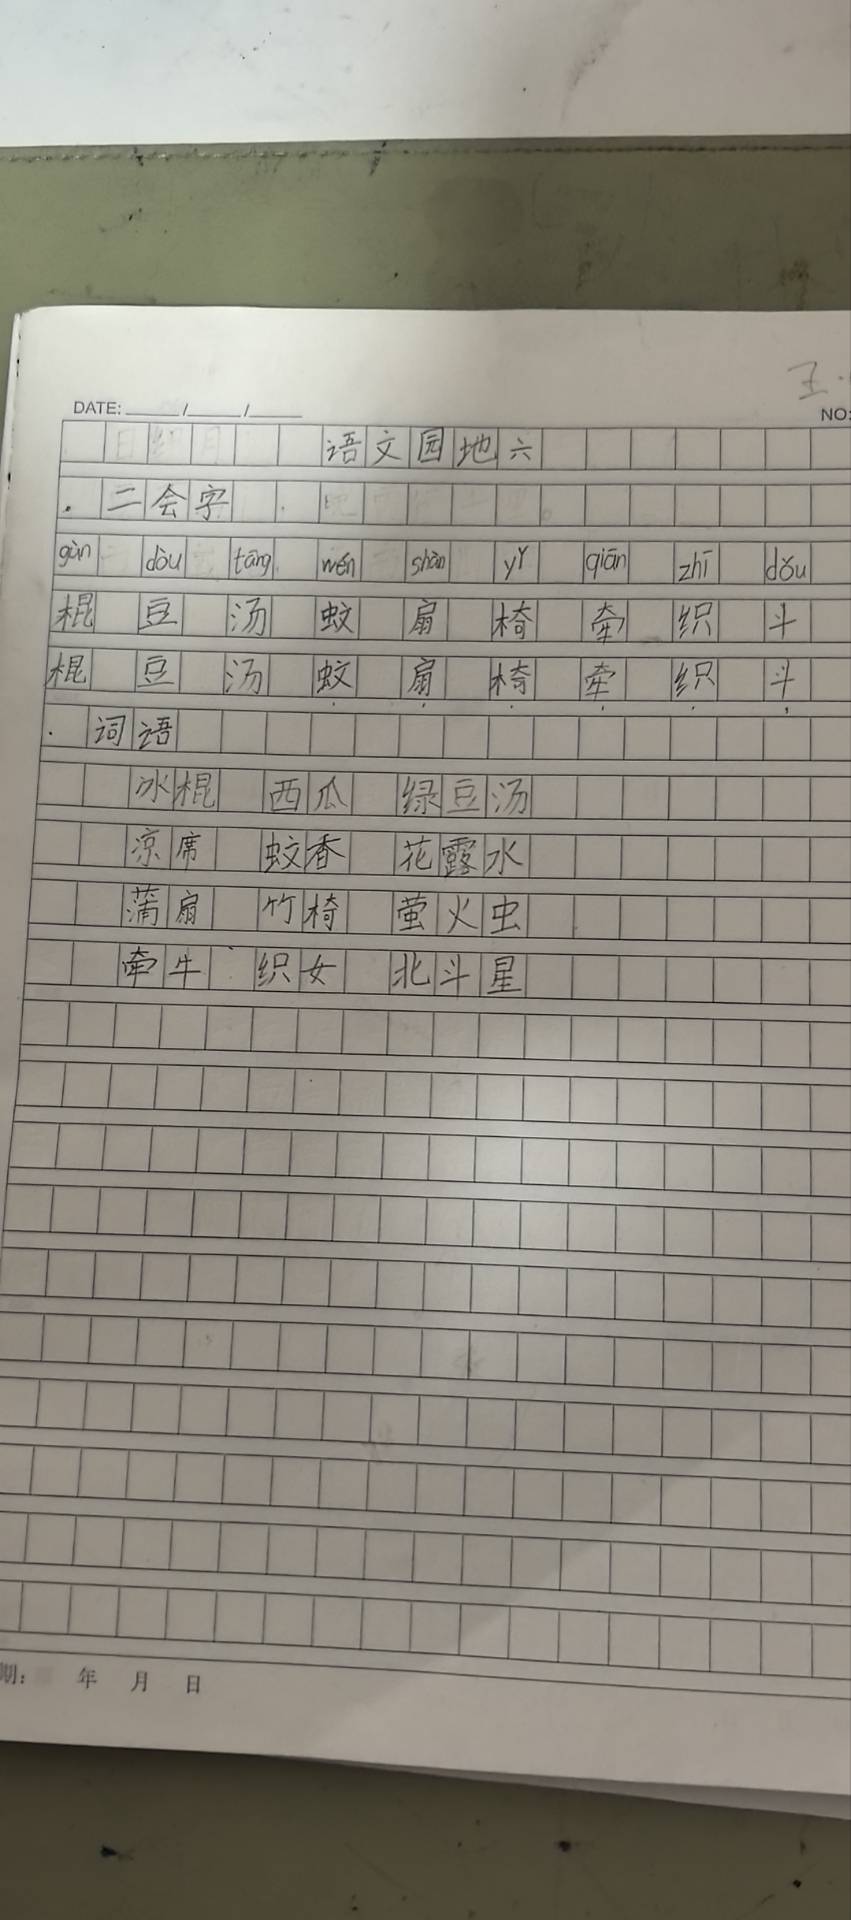 王
DATE: / /
NO:
语文园地六
. 二会字
gùn dòu tāng wén shàn yǐ qiān zhī dǒu
棍 豆 汤 蚊 扇 椅 牵 织 斗
棍 豆 汤 蚊 扇 椅 牵 织 斗
. 词语
冰棍 西瓜 绿豆汤
凉席 蚊香 花露水
蒲扇 竹椅 萤火虫
牵牛 织女 北斗星
期: 年 月 日